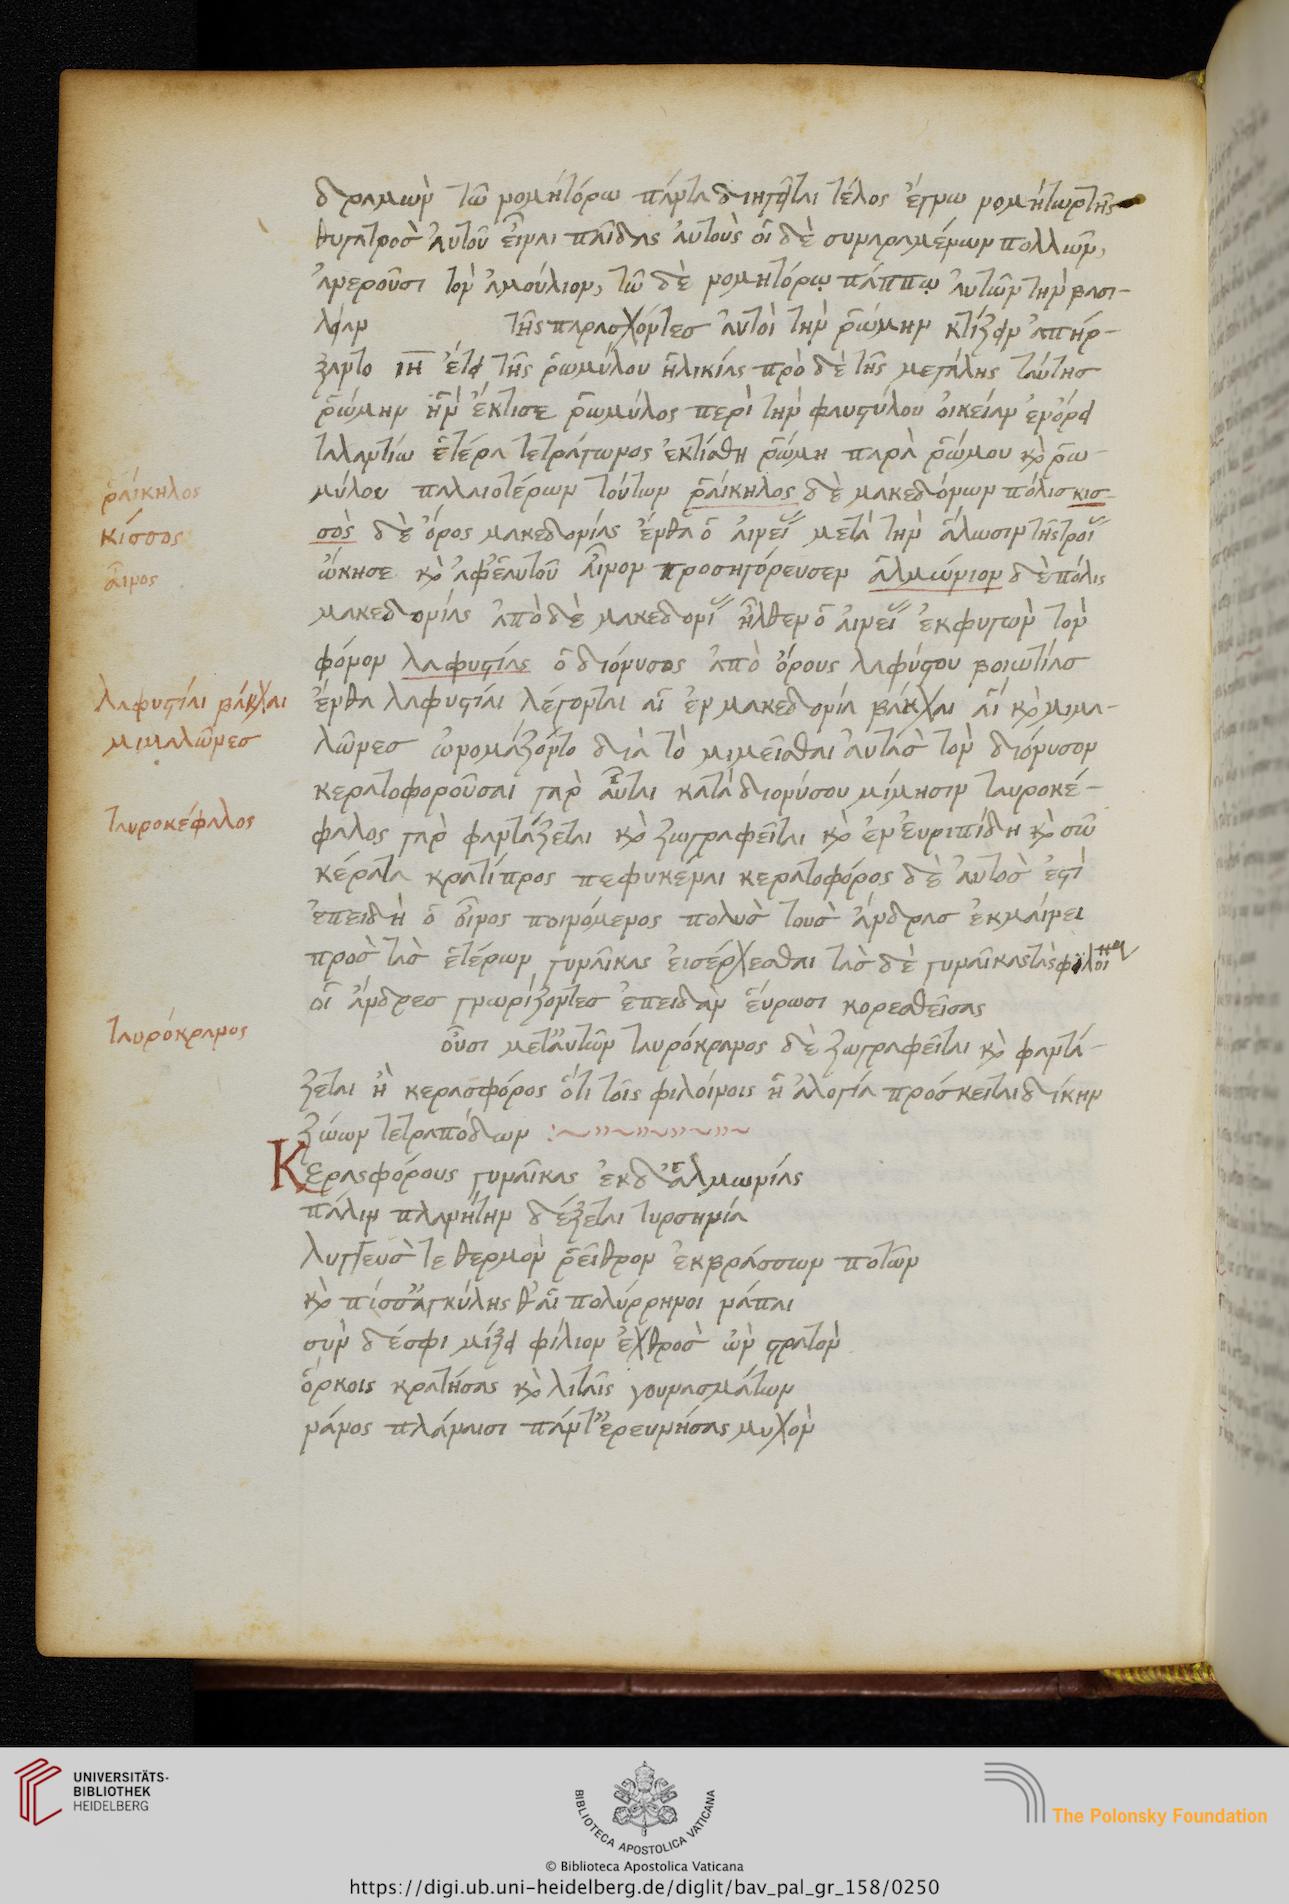 δραμὼν τῶ νομήτόρω πάντα διηγεῖται τέλος ἔγνω νομήτωρ τῆς
θυγατρὸσ ἀυτοῦ εἶναι παῖδας ἀυτοὺς οἱ δὲ συναραμένων πολλῶν,
ἀνεροῦσι τὸν ἀμούλιον, τῶ δὲ νομητόρῳ πάππῳ ἀυτῶν τὴν βασι-
λείαν τῆς παρασχόντεσ ἀυτοὶ τὴν ῥώμην κτίζειν ἀπήρ-
ξαντο ιη ἔτει τῆς ῥωμύλου ἡλικίας πρὸ δὲ τῆς μεγάλης ταύτησ
ῥώμην ἣν ἔκτισε ῥωμύλος περὶ τὴν φαυστύλου ὀικείαν ἐν ὄρει
παλαντίω ἑτέρα τετράγωνος ἐκτίσθη ῥώμη παρὰ ῥώμου κὸ ῥω-
μύλου παλαιοτέρων τούτων ῥαίκηλος δὲ μακεδόνων πόλισ κισ-
σὸς δὲ ὄρος μακεδονίας ἔνθα ὁ ἀινεί μετὰ τὴν ἅλωσιν τῆς τροί
ὤκησε κὸ ἀφ' ἑαυτοῦ ἆινον προσηγόρευσεν ἁλμώνιον δὲ πόλις
μακεδονίας ἀπὸ δὲ μακεδονί ἦλθεν ὁ ἀινεί ἐκφυγὼν τὸν
φόνον λαφυστίας ὁ διόνυσος ἀπὸ ὄρους λαφύστου βοιωτίασ
ἔνθα λαφυστίαι λέγονται αἱ ἐν μακεδονία βάκχαι αἵ κὸ μιμα-
λῶνεσ ὠνομάζοντο διὰ τὸ μιμεῖσθαι ἀυτὰσ τὸν διόνυσον
κερατοφοροῦσαι γὰρ αὗται κατὰ διονύσου μίμησιν ταυροκέ-
φαλος γὰρ φαντάζεται κὸ ζωγραφεῖται κὸ ἐν ἐυριπίδη κὸ σῶ
κέρατα κρατίπρος πεφυκέναι κερατοφόρος δὲ ἀυτὸσ ἐστὶ
ἐπειδὴ ὁ οἶνος ποινόμενος πολὺσ τοὺσ ἄνδρασ ἐκμαίνει
πρὸσ τὰσ ἑτέρων γυναῖκας ἐισέρχεσθαι τὰσ δὲ γυναῖκας τὰς
οἱ ἄνδρεσ γνωρίζοντεσ ἐπειδὰν ἕυρωσι κορεσθεῖσας
οὖσι μετ' ἀυτῶν ταυρόκρανος δὲ ζωγραφεῖται κὸ φαντά-
ζεται ἢ κερασφόρος ὅτι τοῖς φιλοίνοις ἡ ἀλογία πρόσκειται δίκην
ζώων τετραπόδων :~
Κερασφόρους γυναῖκας ἐκ δ' ἁλμωνίας
πάλιν πλανήτην δέξεται τυρσηνία
λυγγεύσ τε θερμὸν ῥεῖθρον ἐκβράσσων ποτῶν
κὸ πίσσ' ἀγκύλης θ' αἱ πολύρρηνοι νάπαι
σὺν δέσφι μίξει φίλιον ἐχθρὸσ ὢν στρατὸν
ὅρκοις κρατήσας κὸ λιταῖς γουνασμάτων
νάνος πλάναισι πάντ' ἐρευνήσας μυχὸν
ῥαίκηλος
κίσσος
ἆινος
λαφυστίαι βάκχαι
μιμαλῶνεσ
ταυροκέφαλος
ταυρόκρανος
UNIVERSITÄTS-
BIBLIOTHEK
HEIDELBERG
BIBLIOTECA APOSTOLICA VATICANA
The Polonsky Foundation
© Biblioteca Apostolica Vaticana
https://digi.ub.uni-heidelberg.de/diglit/bav_pal_gr_158/0250